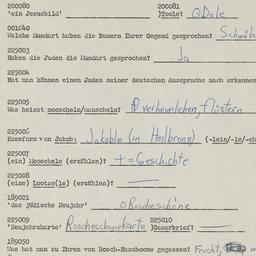 200080 200081
'ein Jesusbild' )Toole( ⊙Dole
001040
Welche Mundart haben die Bauern Ihrer Gegend gesprochen? Schwäb
225003
Haben die Juden die Mundart gesprochen? Ja
225004
Hat man können einen Juden seiner deutschen Aussprache nach erkennen
225005
Was heisst mooscheln/muuscheln? verheimlichen, flüstern
225006
Koseform von Jakob: Jakoble (in Heilbronn) (-lein/-le/-ch
225007
(ein) Mooschele (erzählen)? + = Geschichte
225008
(eine) Lootze(le) (erzählen)?
189021
'das jüdische Neujahr' ⊙Roscheschone
225009 225010
'Neujahrskarte' Roscheschonekarte )Kooserbrief(
189050
Was hat man zu Ihren von Rosch-Haschoone gegessen? Frucht,